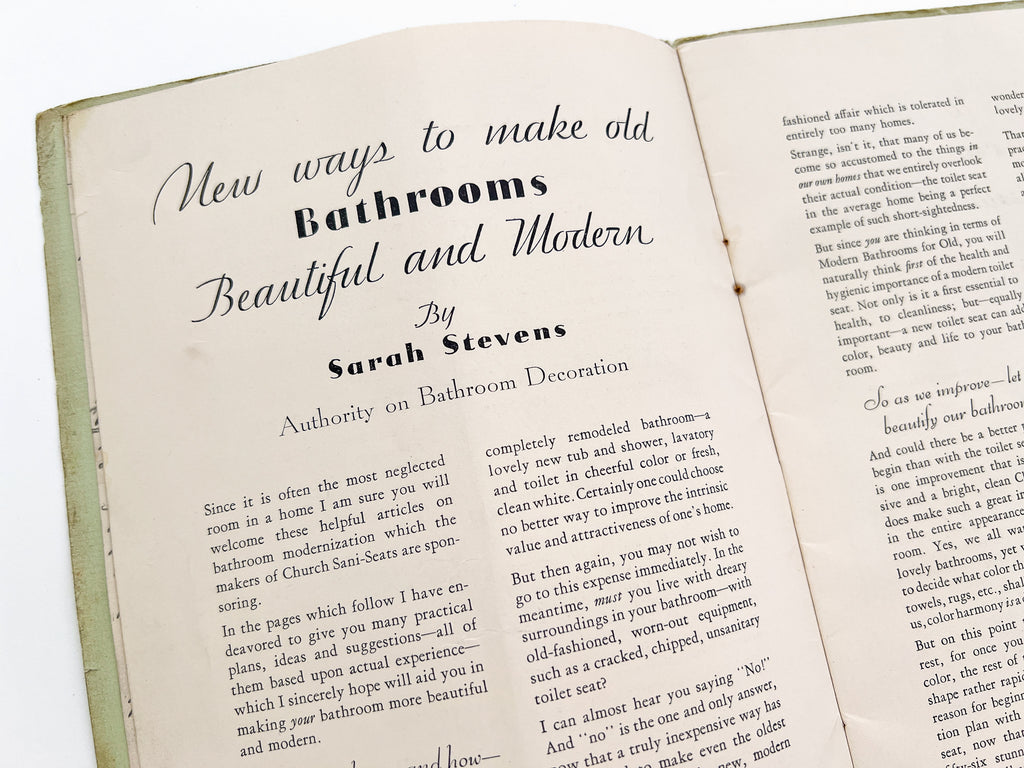 New ways to make old
Bathrooms
Beautiful and Modern
By
Sarah Stevens
Authority on Bathroom Decoration
Since it is often the most neglected
room in a home I am sure you will
welcome these helpful articles on
bathroom modernization which the
makers of Church Sani-Seats are spon-
soring.
In the pages which follow I have en-
deavored to give you many practical
plans, ideas and suggestions—all of
them based upon actual experience—
which I sincerely hope will aid you in
making your bathroom more beautiful
and modern.
and how—
completely remodeled bathroom—a
lovely new tub and shower, lavatory
and toilet in cheerful color or fresh,
clean white. Certainly one could choose
no better way to improve the intrinsic
value and attractiveness of one's home.
But then again, you may not wish to
go to this expense immediately. In the
meantime, must you live with dreary
surroundings in your bathroom—with
old-fashioned, worn-out equipment,
such as a cracked, chipped, unsanitary
toilet seat?
I can almost hear you saying "No!"
And "no" is the one and only answer,
now that a truly inexpensive way has
to make even the oldest
new, modern
fashioned affair which is tolerated in
entirely too many homes.
Strange, isn't it, that many of us be-
come so accustomed to the things in
our own homes that we entirely overlook
their actual condition—the toilet seat
in the average home being a perfect
example of such short-sightedness.
But since you are thinking in terms of
Modern Bathrooms for Old, you will
naturally think first of the health and
hygienic importance of a modern toilet
seat. Not only is it a first essential to
health, to cleanliness; but—equally
important—a new toilet seat can add
color, beauty and life to your bath
room.
So as we improve—let
beautify our bathroom
And could there be a better
begin than with the toilet
is one improvement that is
sive and a bright, clean
does make such a great
in the entire appearance
room. Yes, we all wa
lovely bathrooms, yet
to decide what color
towels, rugs, etc., shal
us, color harmony is a
But on this point
rest, for once you
color, the rest of
shape rather rapid
reason for begin
tion plan with
seat, now that
fifty-six stunn
wonder
lovely